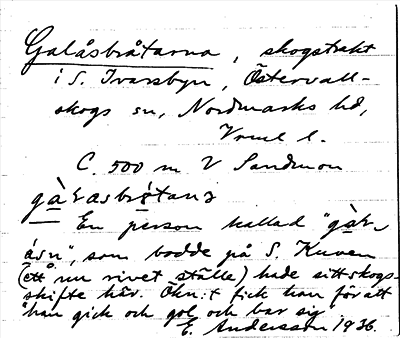 Galåsbråtarna, skogstrakt
i S. Ivarsbyn, Östervall-
skogs sn, Nordmarks hd,
Vrml l.
C. 500 m V Sandmon
En person kallad "gàɫ-
åsn", som bodde på S. Kuven
(ett nu rivet ställe) hade sitt skogs-
skifte här. Ökn:t fick han för att
"han gick och gol och bar sig".
E. Andersson 1936.